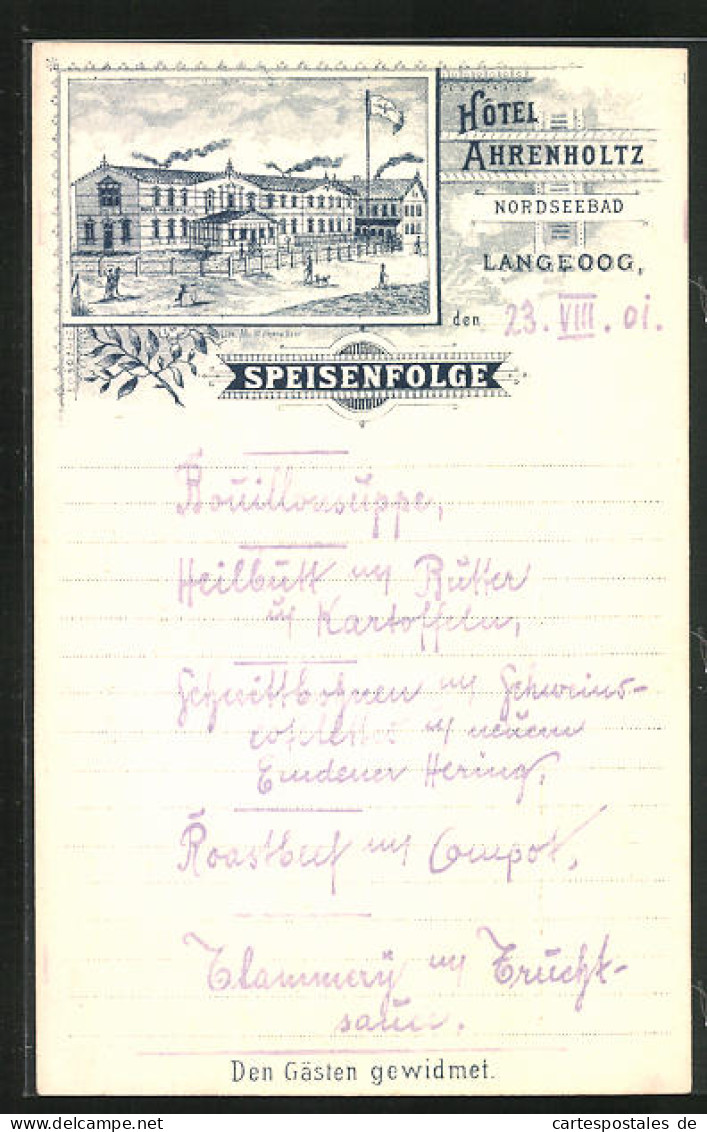 HÔTEL
AHRENHOLTZ
NORDSEEBAD
LANGEOOG,
den 23. VIII. 01.
SPEISENFOLGE
Bouillonsuppe,
Heilbutt m Butter
u Kartoffeln,
Schnittbohnen m Schweins-
cotelettes u neuem
Emdener Hering,
Roastbeef m Compot,
Flammerÿ m Frucht-
sauce.
Den Gästen gewidmet.
www.cartespostales.de